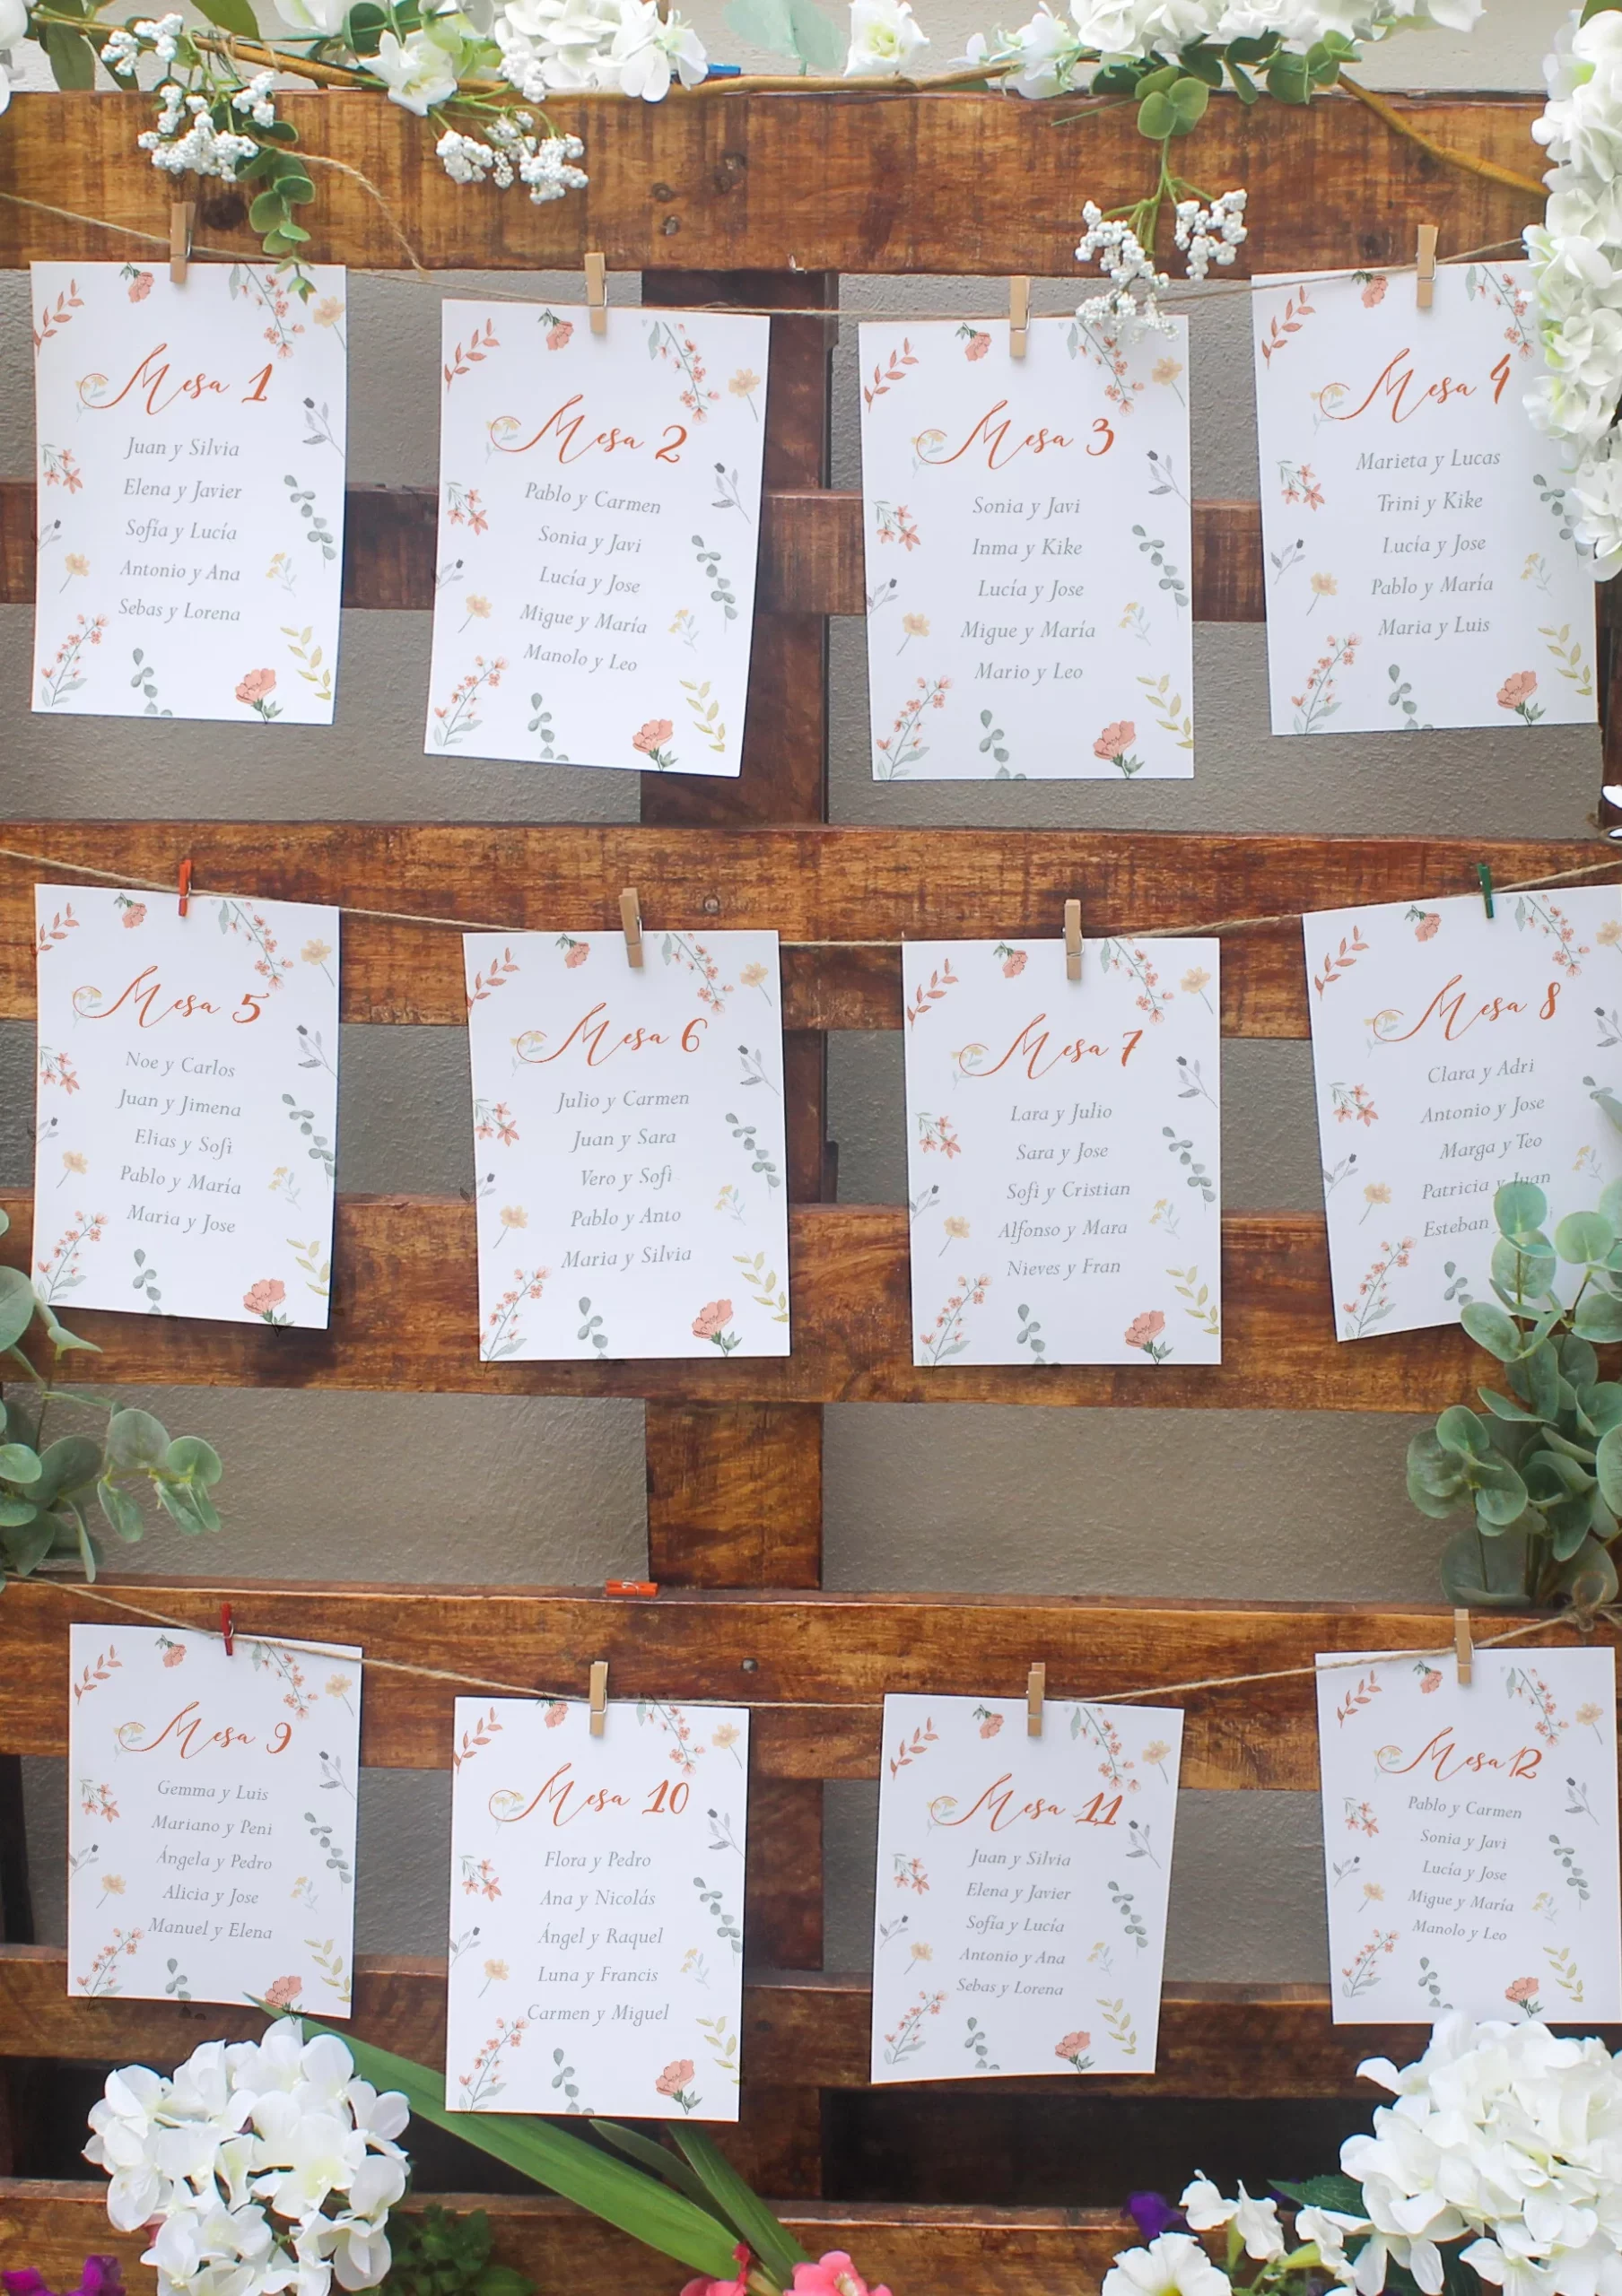 Mesa 1
Juan y Silvia
Elena y Javier
Sofía y Lucía
Antonio y Ana
Sebas y Lorena
Mesa 2
Pablo y Carmen
Sonia y Javi
Lucía y Jose
Migue y María
Manolo y Leo
Mesa 3
Sonia y Javi
Inma y Kike
Lucía y Jose
Migue y María
Mario y Leo
Mesa 4
Marieta y Lucas
Trini y Kike
Lucía y Jose
Pablo y María
Maria y Luis
Mesa 5
Noe y Carlos
Juan y Jimena
Elias y Sofi
Pablo y María
Maria y Jose
Mesa 6
Julio y Carmen
Juan y Sara
Vero y Sofi
Pablo y Anto
Maria y Silvia
Mesa 7
Lara y Julio
Sara y Jose
Sofi y Cristian
Alfonso y Mara
Nieves y Fran
Mesa 8
Clara y Adri
Antonio y Jose
Marga y Teo
Patricia y Juan
Esteban
Mesa 9
Gemma y Luis
Mariano y Peni
Ángela y Pedro
Alicia y Jose
Manuel y Elena
Mesa 10
Flora y Pedro
Ana y Nicolás
Ángel y Raquel
Luna y Francis
Carmen y Miguel
Mesa 11
Juan y Silvia
Elena y Javier
Sofía y Lucía
Antonio y Ana
Sebas y Lorena
Mesa 12
Pablo y Carmen
Sonia y Javi
Lucía y Jose
Migue y María
Manolo y Leo